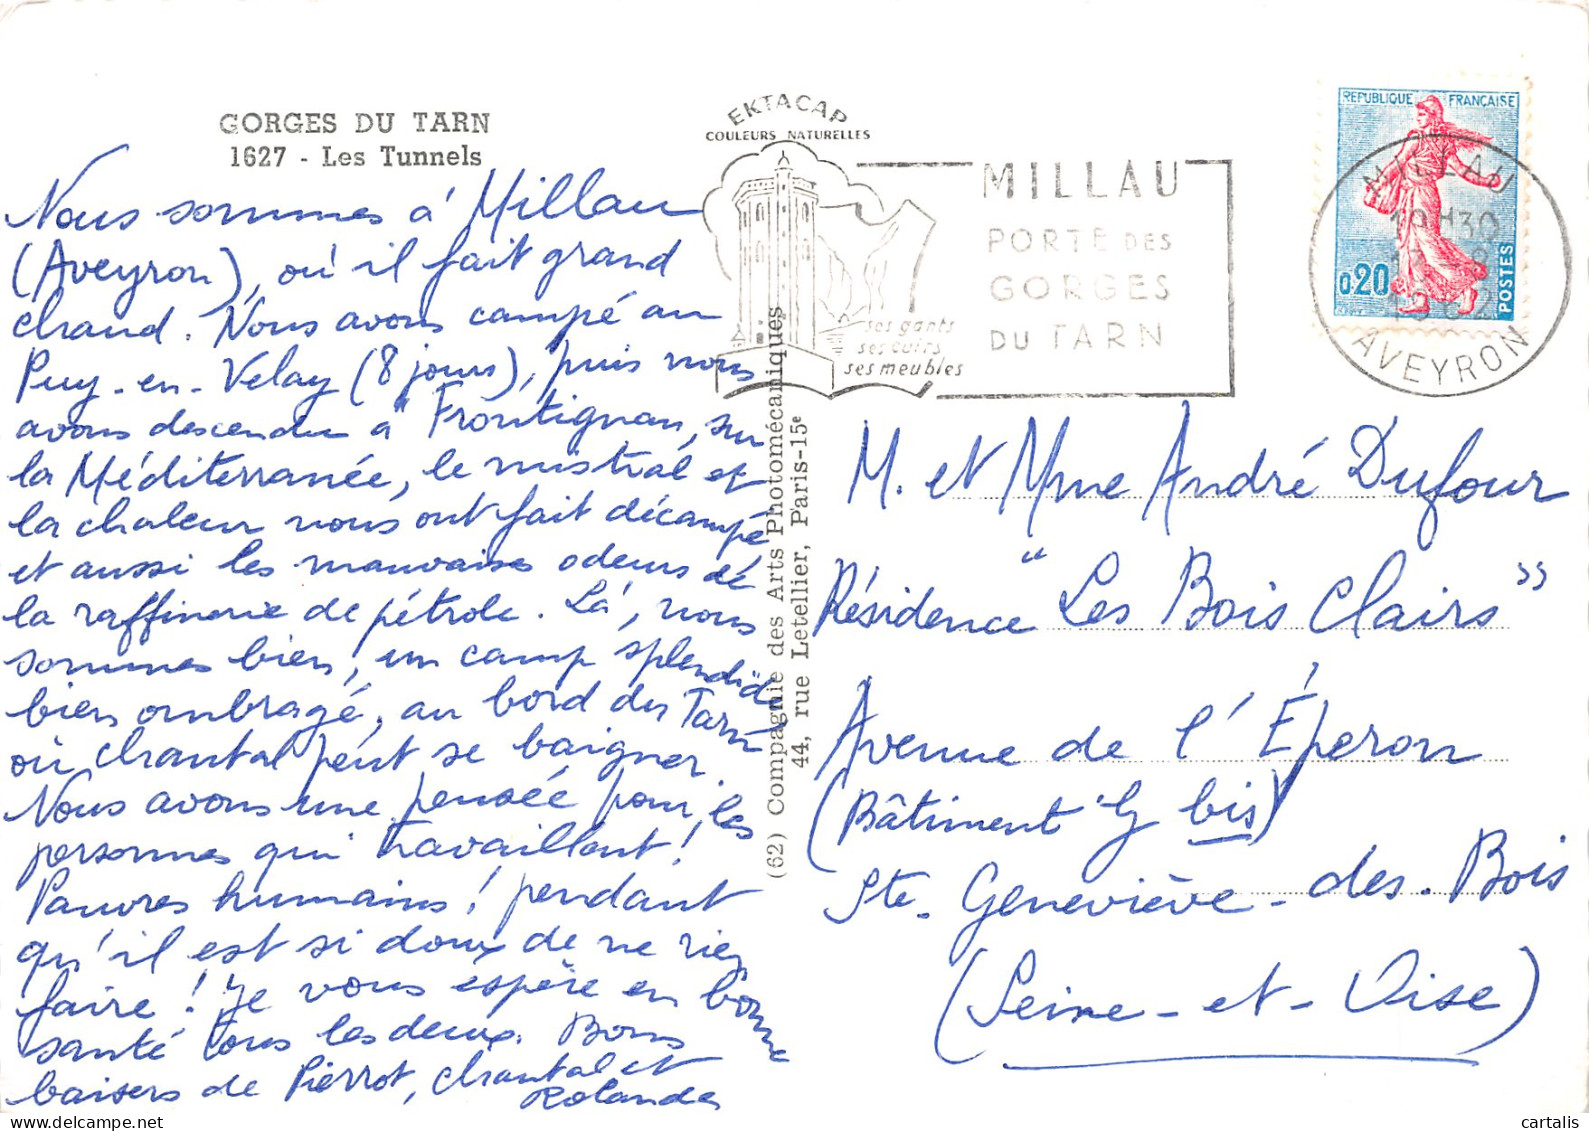 GORGES DU TARN
1627 - Les Tunnels
Nous sommes à Millau
(Aveyron), où il fait grand
chaud. Nous avons campé au
Puy-en-Velay (8 jours), puis nous
avons descendu à Frontignan, sur
la Méditerranée, le mistral et
la chaleur nous ont fait décampé
et aussi les mauvaises odeurs de
la raffinerie de pétrole. Là, nous
sommes bien, un camp splendide
bien ombragé, au bord du Tarn
où Chantal peut se baigner.
Nous avons une pensée pour les
personnes qui travaillent!
Pauvres humains! pendant
qu'il est si doux de ne rien
faire! Je vous espère en bonne
santé tous les deux. Bons
baisers de Pierrot, Chantal et
Rolande
EKTACAP
COULEURS NATURELLES
(62) Compagnie des Arts Photomécaniques
44, rue Letellier, Paris-15e
ses gants
ses cuirs
ses meubles
MILLAU
PORTE DES
GORGES
DU TARN
REPUBLIQUE FRANÇAISE
0,20
POSTES
MILLAU
H30
8
1962
AVEYRON
M. et Mme André Dufour
Résidence "Les Bois Clairs"
Avenue de l'Éperon
(Bâtiment G bis)
Ste-Geneviève-des-Bois
(Seine-et-Oise)
cartalis
www.delcampe.net